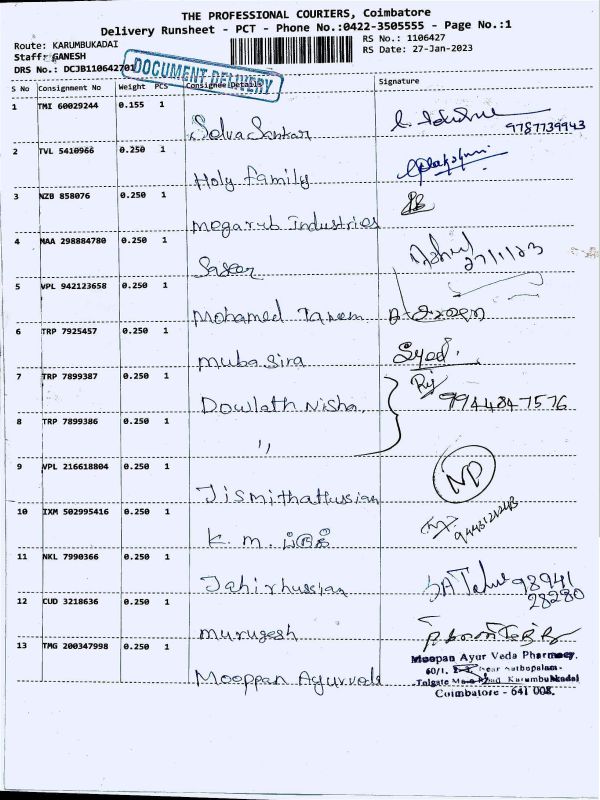 THE PROFESSIONAL COURIERS, Coimbatore
Delivery Runsheet - PCT - Phone No.:0422-3505555 - Page No.:1
Route: KARUMBUKADAI RS No.: 1106427
Staff: GANESH RS Date: 27-Jan-2023
DRS No.: DCJB110642701
DOCUMENT DELIVERY
S No Consignment No Weight PCS Consignee Details Signature
1 TMI 60029244 0.155 1
Selva Sankar 9787739943
2 TVL 5410966 0.250 1
Holy family
3 NZB 858076 0.250 1
megarub Industries
4 MAA 298884780 0.250 1
27/1/23
5 VPL 942123658 0.250 1
Mohamed
6 TRP 7925457 0.250 1
mubasira Syed.
7 TRP 7899387 0.250 1
Dowlath Nisha 9944847576
8 TRP 7899386 0.250 1
〃
9 VPL 216618804 0.250 1
ND
10 IXM 502995416 0.250 1
K. m.
11 NKL 7990366 0.250 1
Jahirhussian 98941
28280
12 CUD 3218636 0.250 1
murugesh
13 TMG 200347998 0.250 1
Mooppan Ayurveda
Moopan Ayur Veda Pharmacy.
60/1,
Tolgate Karumbukkadai
Coimbatore - 641 008.